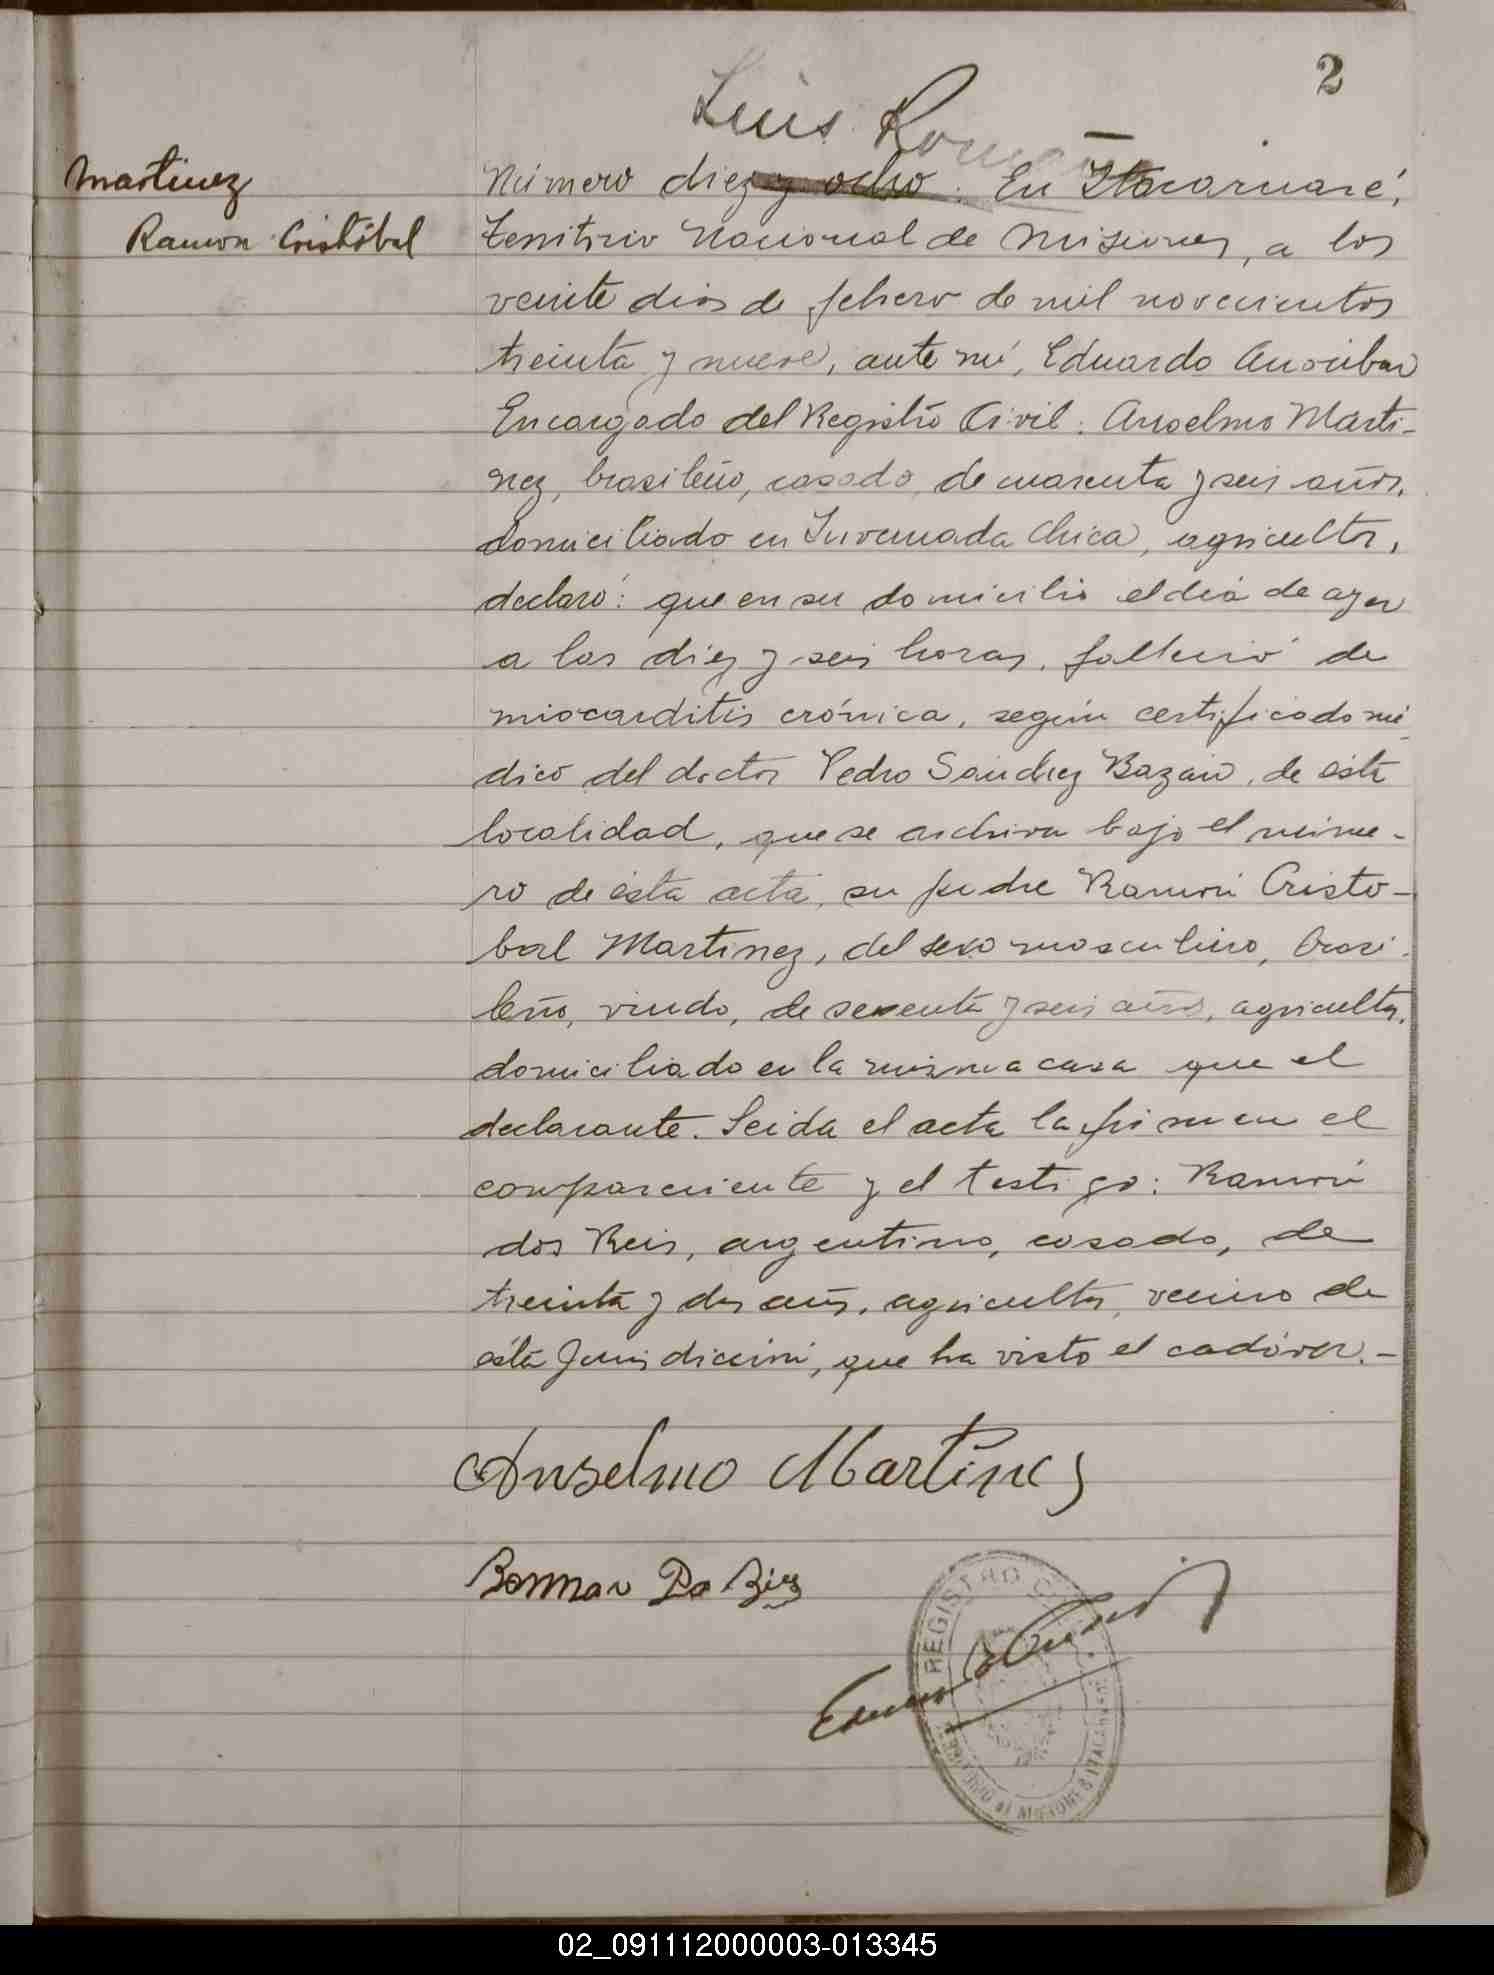 2
Luis Roman
Martinez
Ramon Cristóbal
Número diez y ocho. En Itacaruaré,
Territorio Nacional de Misiones, a los
veinte dias de febrero de mil novecientos
treinta y nueve, ante mí, Eduardo
Encargado del Registro Civil: Anselmo Marti-
nez, brasileño, casado, de cuarenta y seis años,
domiciliado en Invernada Chica, agricultor,
declaró: que en su domicilio el dia de ayer
a las diez y seis horas, falleció de
miocarditis crónica, según certificado mé
dico del doctor Pedro Sanchez Bazan, de ésta
localidad, que se archiva bajo el núme-
ro de ésta acta, su padre Ramón Cristo-
bal Martinez, del sexo masculino, brasi-
leño, viudo, de y seis años, agricultor,
domiciliado en la misma casa que el
declarante. Leida el acta la firman el
compareciente y el testigo: Ramón
dos Reis, argentino, casado, de
treinta y dos años, agricultor, vecino de
ésta Jurisdicción, que ha visto el cadáver.-
Anselmo Martinez
REGISTRO
TERRITORIO DE MISIONES ITACARUARE
02_091112000003-013345